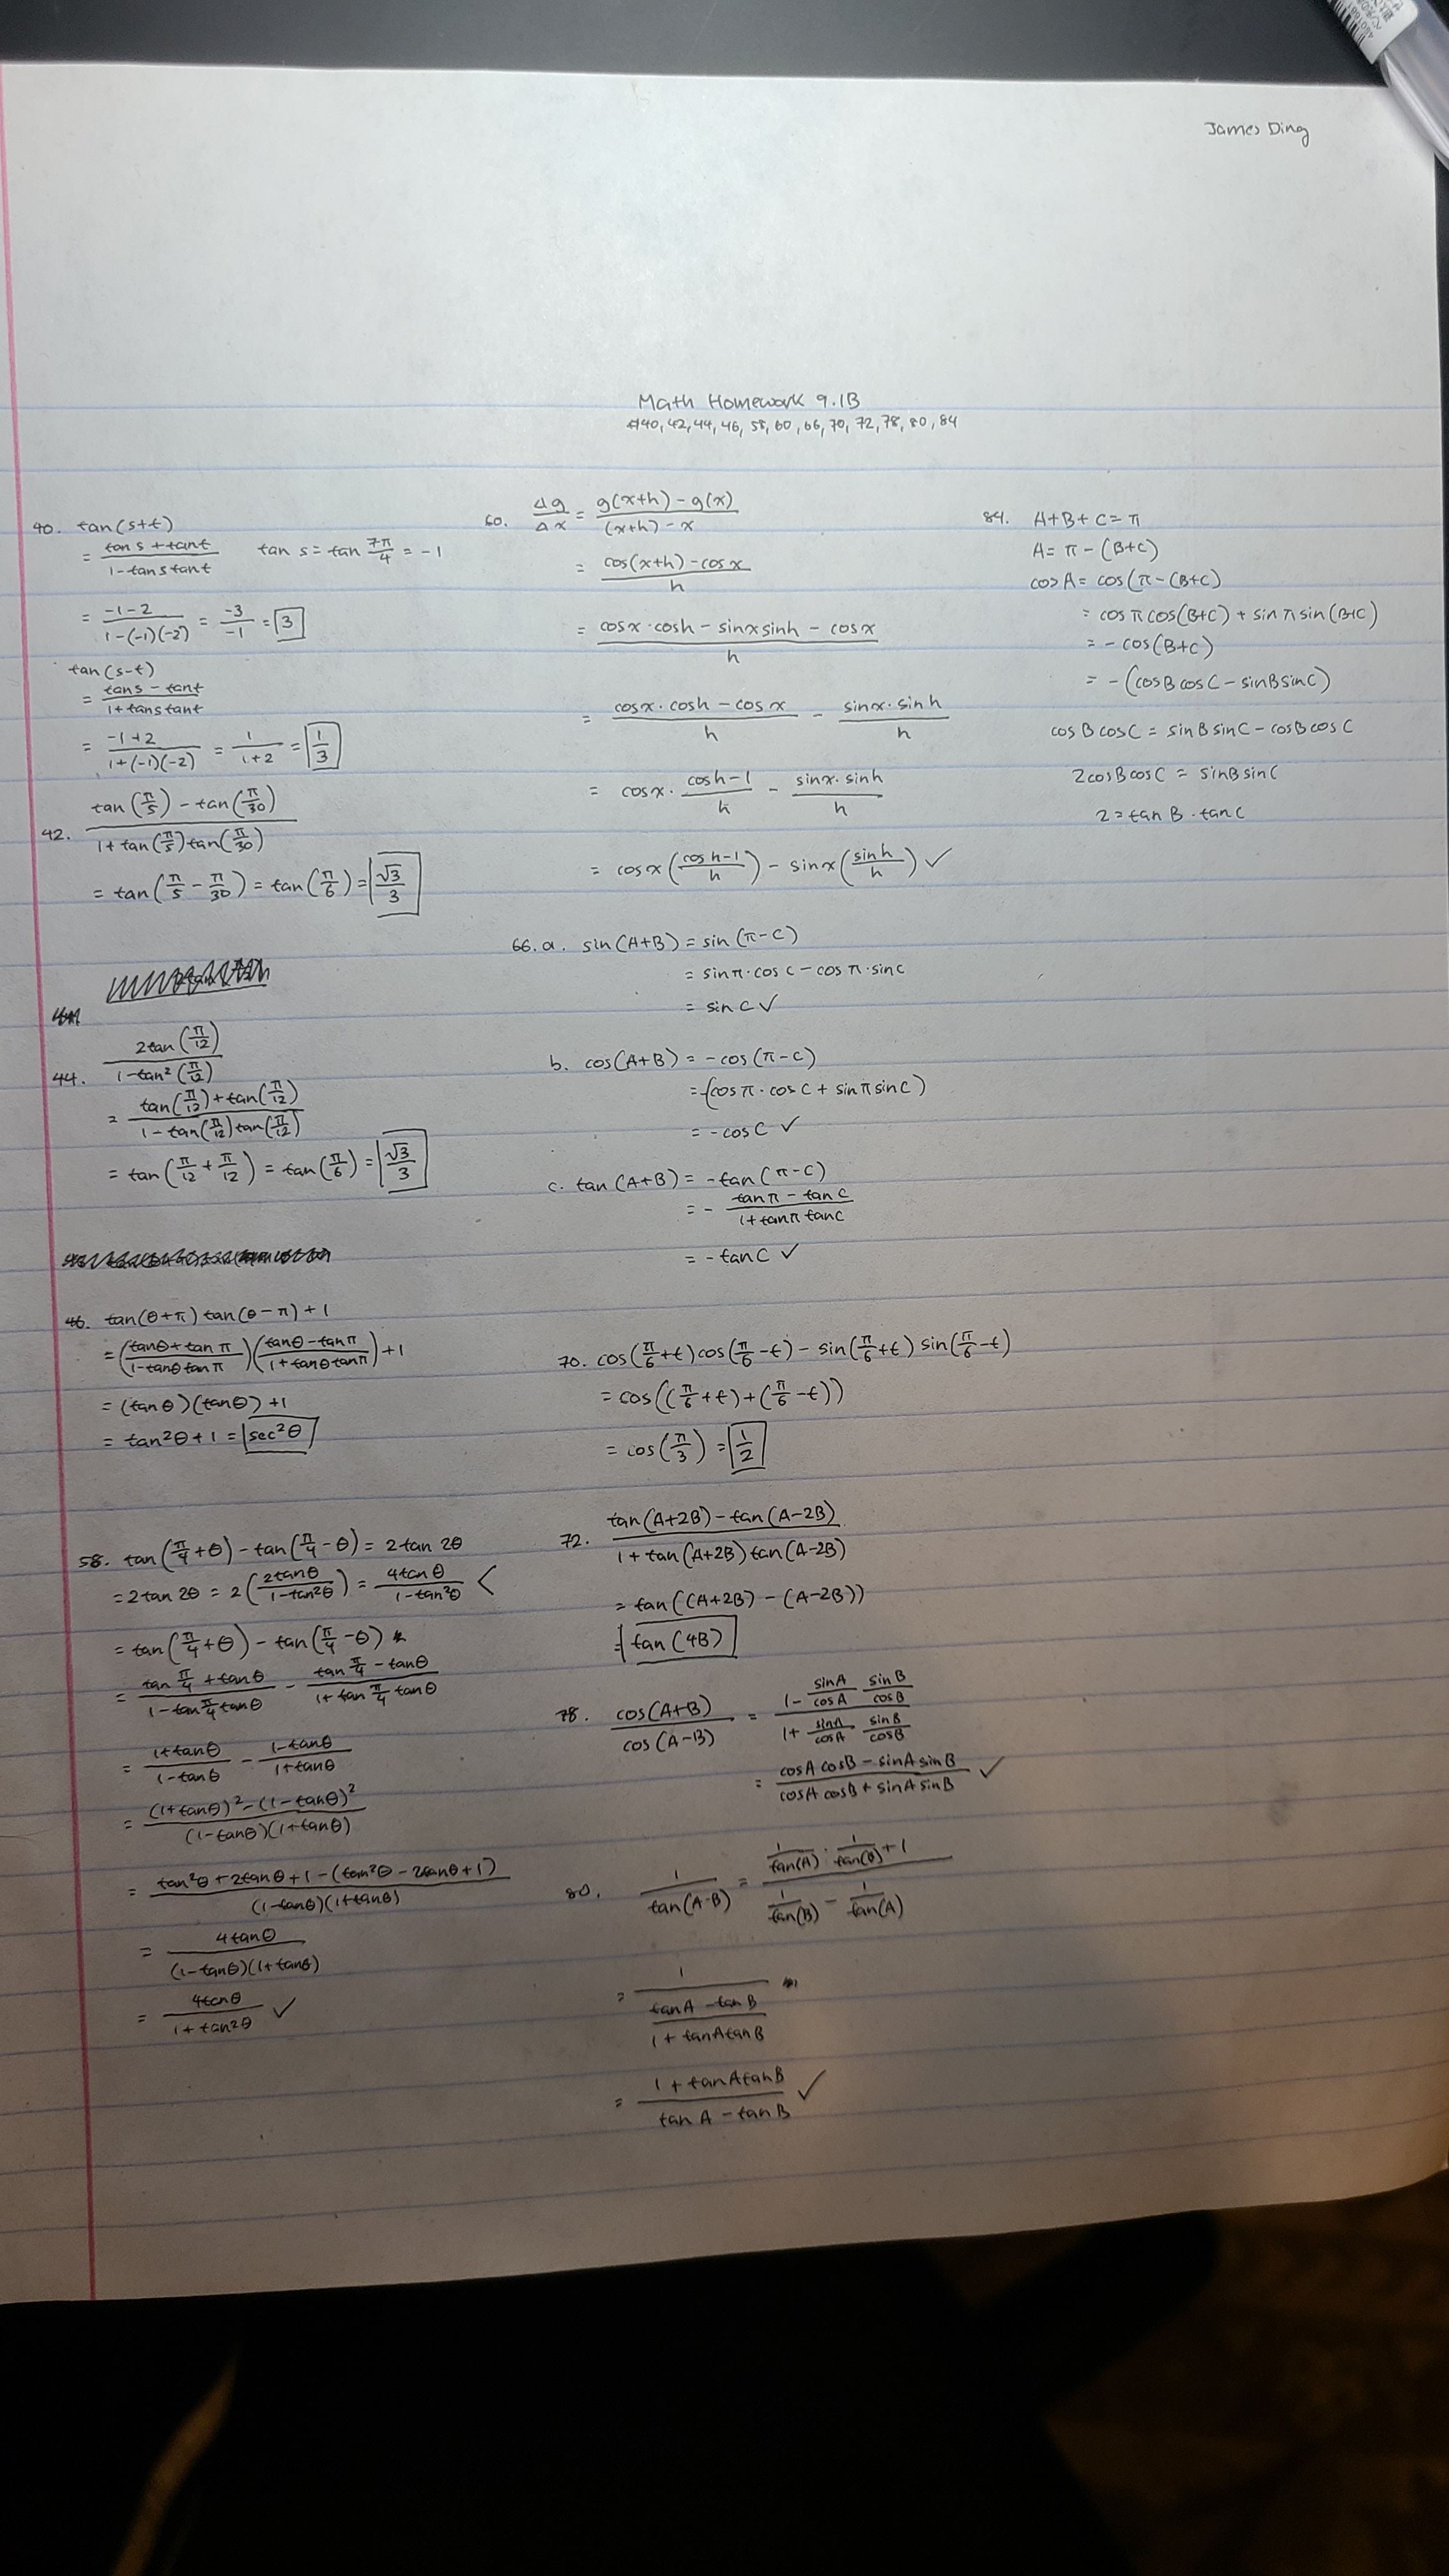 James Ding
Math Homework 9.1B
#40, 42, 44, 46, 58, 60, 66, 70, 72, 78, 80, 84
40. tan(s+t)
= (tan s + tan t)/(1 - tan s tan t)   tan s = tan 7π/4 = -1
= (-1-2)/(1-(-1)(-2)) = -3/-1 = 3
tan(s-t)
= (tan s - tan t)/(1 + tan s tan t)
= (-1+2)/(1+(-1)(-2)) = 1/(1+2) = 1/3
42. (tan(π/5) - tan(π/30))/(1 + tan(π/5)tan(π/30))
= tan(π/5 - π/30) = tan(π/6) = √3/3
44. 2tan(π/12)/(1-tan²(π/12))
= (tan(π/12) + tan(π/12))/(1 - tan(π/12)tan(π/12))
= tan(π/12 + π/12) = tan(π/6) = √3/3
46. tan(θ+π) tan(θ-π) + 1
= ((tanθ + tan π)/(1 - tanθ tan π))((tanθ - tanπ)/(1 + tanθ tanπ)) + 1
= (tan θ)(tan θ) + 1
= tan²θ + 1 = sec²θ
58. tan(π/4 + θ) - tan(π/4 - θ) = 2 tan 2θ
= 2 tan 2θ = 2(2tanθ/(1-tan²θ)) = 4tanθ/(1-tan²θ) <
= tan(π/4 + θ) - tan(π/4 - θ)
= (tan π/4 + tanθ)/(1 - tan π/4 tanθ) - (tan π/4 - tanθ)/(1 + tan π/4 tanθ)
= (1+tanθ)/(1-tanθ) - (1-tanθ)/(1+tanθ)
= ((1+tanθ)² - (1-tanθ)²)/((1-tanθ)(1+tanθ))
= (tan²θ + 2tanθ + 1 - (tan²θ - 2tanθ + 1))/((1-tanθ)(1+tanθ))
= 4tanθ/((1-tanθ)(1+tanθ))
= 4tanθ/(1+tan²θ) ✓
60. Δg/Δx = (g(x+h) - g(x))/((x+h) - x)
= (cos(x+h) - cos x)/h
= (cosx·cosh - sinx sinh - cosx)/h
= (cosx·cosh - cosx)/h - (sinx·sinh)/h
= cosx·(cosh-1)/h - (sinx·sinh)/h
= cosx((cosh-1)/h) - sinx(sinh/h) ✓
66. a. sin(A+B) = sin(π-C)
= sinπ·cosC - cosπ·sinC
= sin C ✓
b. cos(A+B) = -cos(π-C)
= -(cosπ·cosC + sinπ sinC)
= -cosC ✓
c. tan(A+B) = -tan(π-C)
= -(tanπ - tanC)/(1+tanπ tanC)
= -tanC ✓
70. cos(π/6+t)cos(π/6-t) - sin(π/6+t) sin(π/6-t)
= cos((π/6+t)+(π/6-t))
= cos(π/3) = 1/2
72. (tan(A+2B) - tan(A-2B))/(1 + tan(A+2B)tan(A-2B))
= tan((A+2B) - (A-2B))
= tan(4B)
78. cos(A+B)/cos(A-B) = (1 - sinA/cosA sinB/cosB)/(1 + sinA/cosA sinB/cosB)
= (cosA cosB - sinA sinB)/(cosA cosB + sinA sinB) ✓
80. 1/tan(A-B) = (1/tan(A) · 1/tan(B) + 1)/(1/tan(B) - 1/tan(A))
= 1/((tanA - tanB)/(1 + tanAtanB))
= (1 + tanAtanB)/(tanA - tanB) ✓
84. A+B+C = π
A = π - (B+C)
cosA = cos(π-(B+C)
= cosπcos(B+C) + sinπsin(B+C)
= -cos(B+C)
= -(cosBcosC - sinBsinC)
cosBcosC = sinBsinC - cosBcosC
2cosBcosC = sinBsinC
2 = tanB·tanC